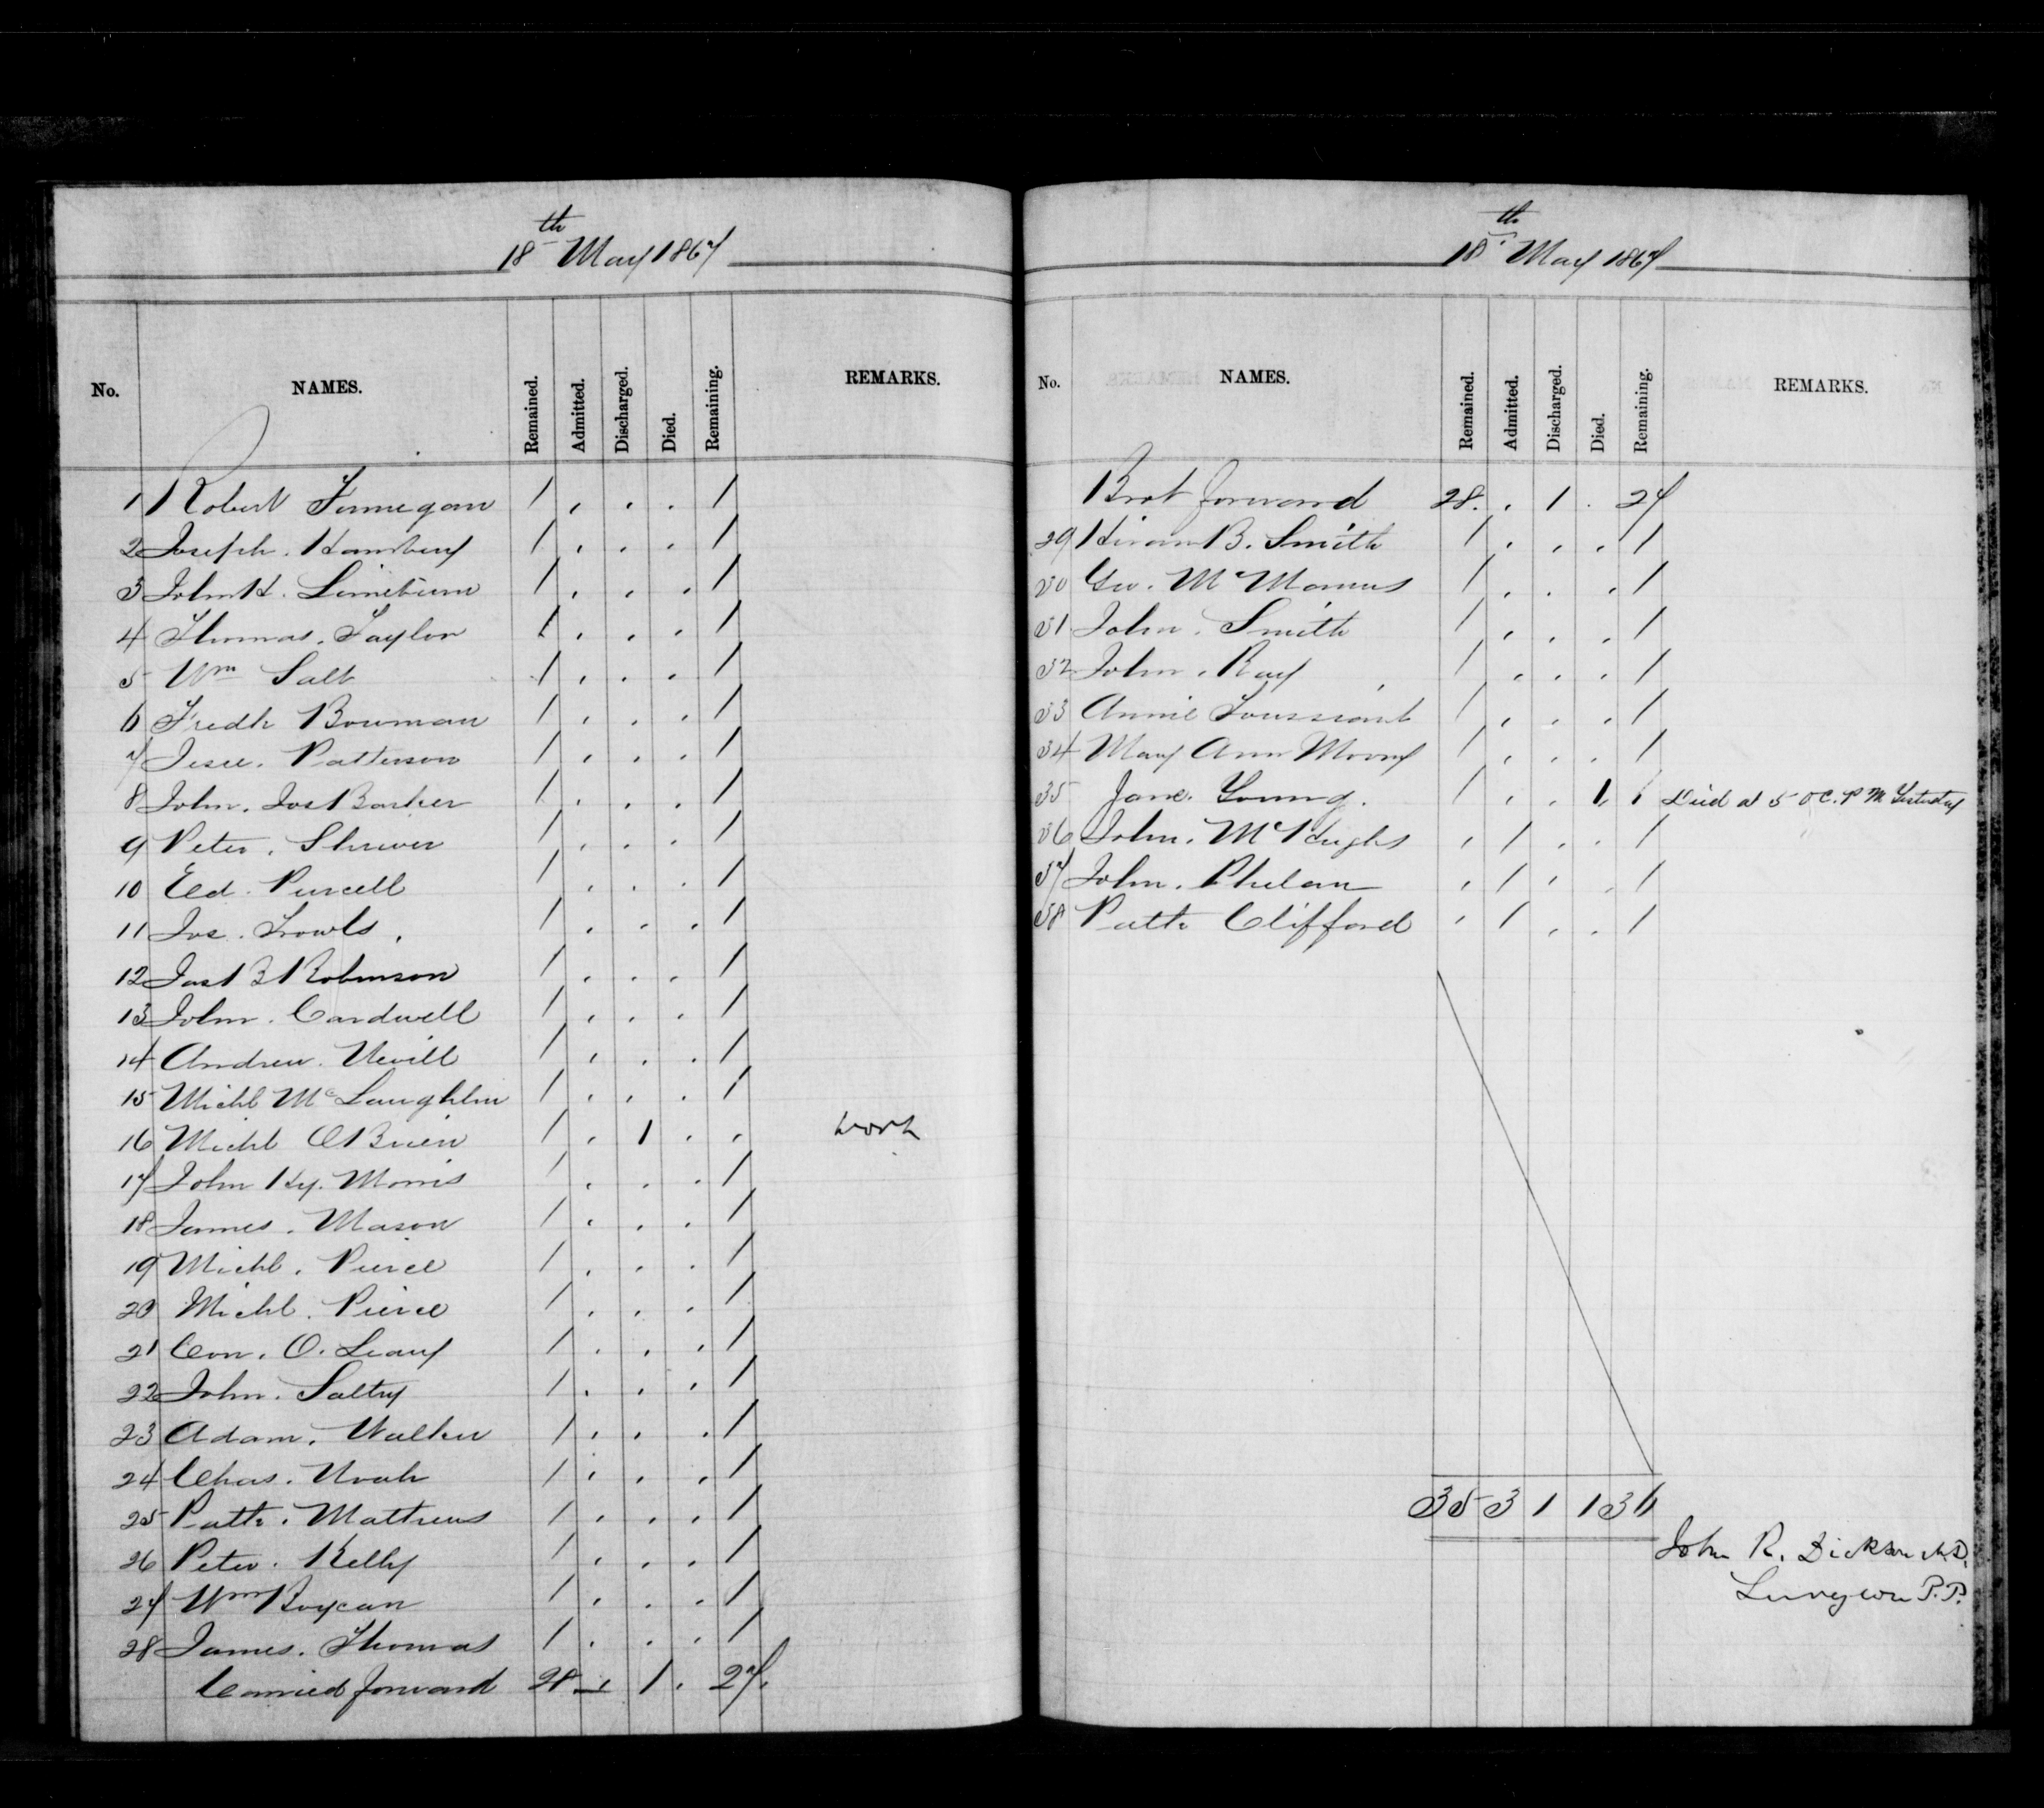 18th May 1867
No. NAMES. Remained. Admitted. Discharged. Died. Remaining. REMARKS.
1 Robert Finnegan 1 . . . 1
2 Joseph. Hambery 1 . . . 1
3 John H. 1 . . . 1
4 Thomas. Taylor 1 . . . 1
5 Wm Salt 1 . . . 1
6 Fredk Bowman 1 . . . 1
7 Jesse. Patterson 1 . . . 1
8 John. Jos Barker 1 . . . 1
9 Peter. 1 . . . 1
10 Ed. Purcell 1 . . . 1
11 Jos. 1 . . . 1
12 Jas B Robinson 1 . . . 1
13 John. Cardwell 1 . . . 1
14 Andrew. Nevill 1 . . . 1
15 Michl McLaughlin 1 . . . 1
16 Michl OBrien 1 . 1 . . work
17 John Hy. Morris 1 . . . 1
18 James. Mason 1 . . . 1
19 Michl. Pierce 1 . . . 1
20 Michl. Pierce 1 . . . 1
21 Con. O. Leary 1 . . . 1
22 John. Saltry 1 . . . 1
23 Adam. Walker 1 . . . 1
24 Chas. Noah 1 . . . 1
25 Patk. Mathews 1 . . . 1
26 Peter. Kelly 1 . . . 1
27 Wm 1 . . . 1
28 James. Thomas 1 . . . 1
Carried forward 28 . 1 . 27.
18th May 1867
No. NAMES. Remained. Admitted. Discharged. Died. Remaining. REMARKS.
Brot forward 28. . 1 . 27
29 Hiram B. Smith 1 . . . 1
30 Geo. McManus 1 . . . 1
31 John. Smith 1 . . . 1
32 John. Ray 1 . . . 1
33 Annie Toussiant 1 . . . 1
34 Mary Ann Moony 1 . . . 1
35 Jane. Young. 1 . . 1. 1 Died at 5 OC. P M Yesterday
36 John. McHughs . 1 . . 1
37 John. Phelan . 1 . . 1
38 Patk Clifford . 1 . . 1
35 3 1 1 36
John R. Dickson M.D.
Surgeon P.P.